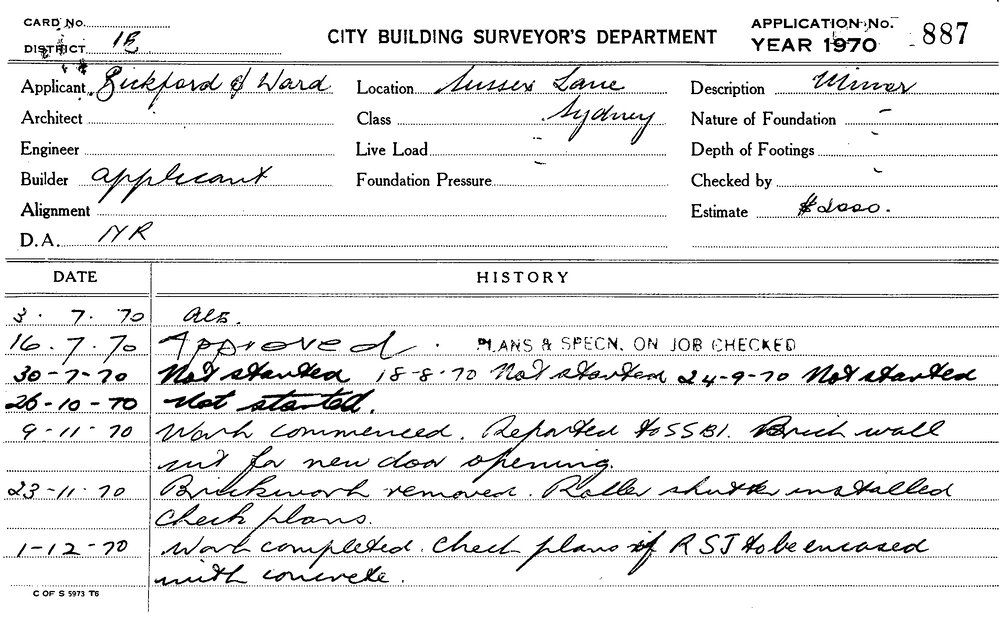 CARD No.
DISTRICT 1B
CITY BUILDING SURVEYOR'S DEPARTMENT
APPLICATION No. 887
YEAR 1970
Applicant Bickford & Ward Location Sussex Lane Description Minor
Architect Class Sydney Nature of Foundation -
Engineer Live Load - Depth of Footings -
Builder applicant Foundation Pressure - Checked by -
Alignment Estimate $2000.
D.A. NR
DATE HISTORY
3. 7. 70
16. 7. 70 Approved. PLANS & SPECN. ON JOB CHECKED
30-7-70 Not started 18-8-70 Not started 24-9-70 Not started
26-10-70 Not started.
9-11-70 Work commenced. Reported to SSBI. Brick wall
cut for new door opening.
23-11-70 Brickwork removed. Roller shutter installed
Check plans.
1-12-70 Work completed. Check plans if RSJ to be encased
with concrete.
C OF S 5973 T6